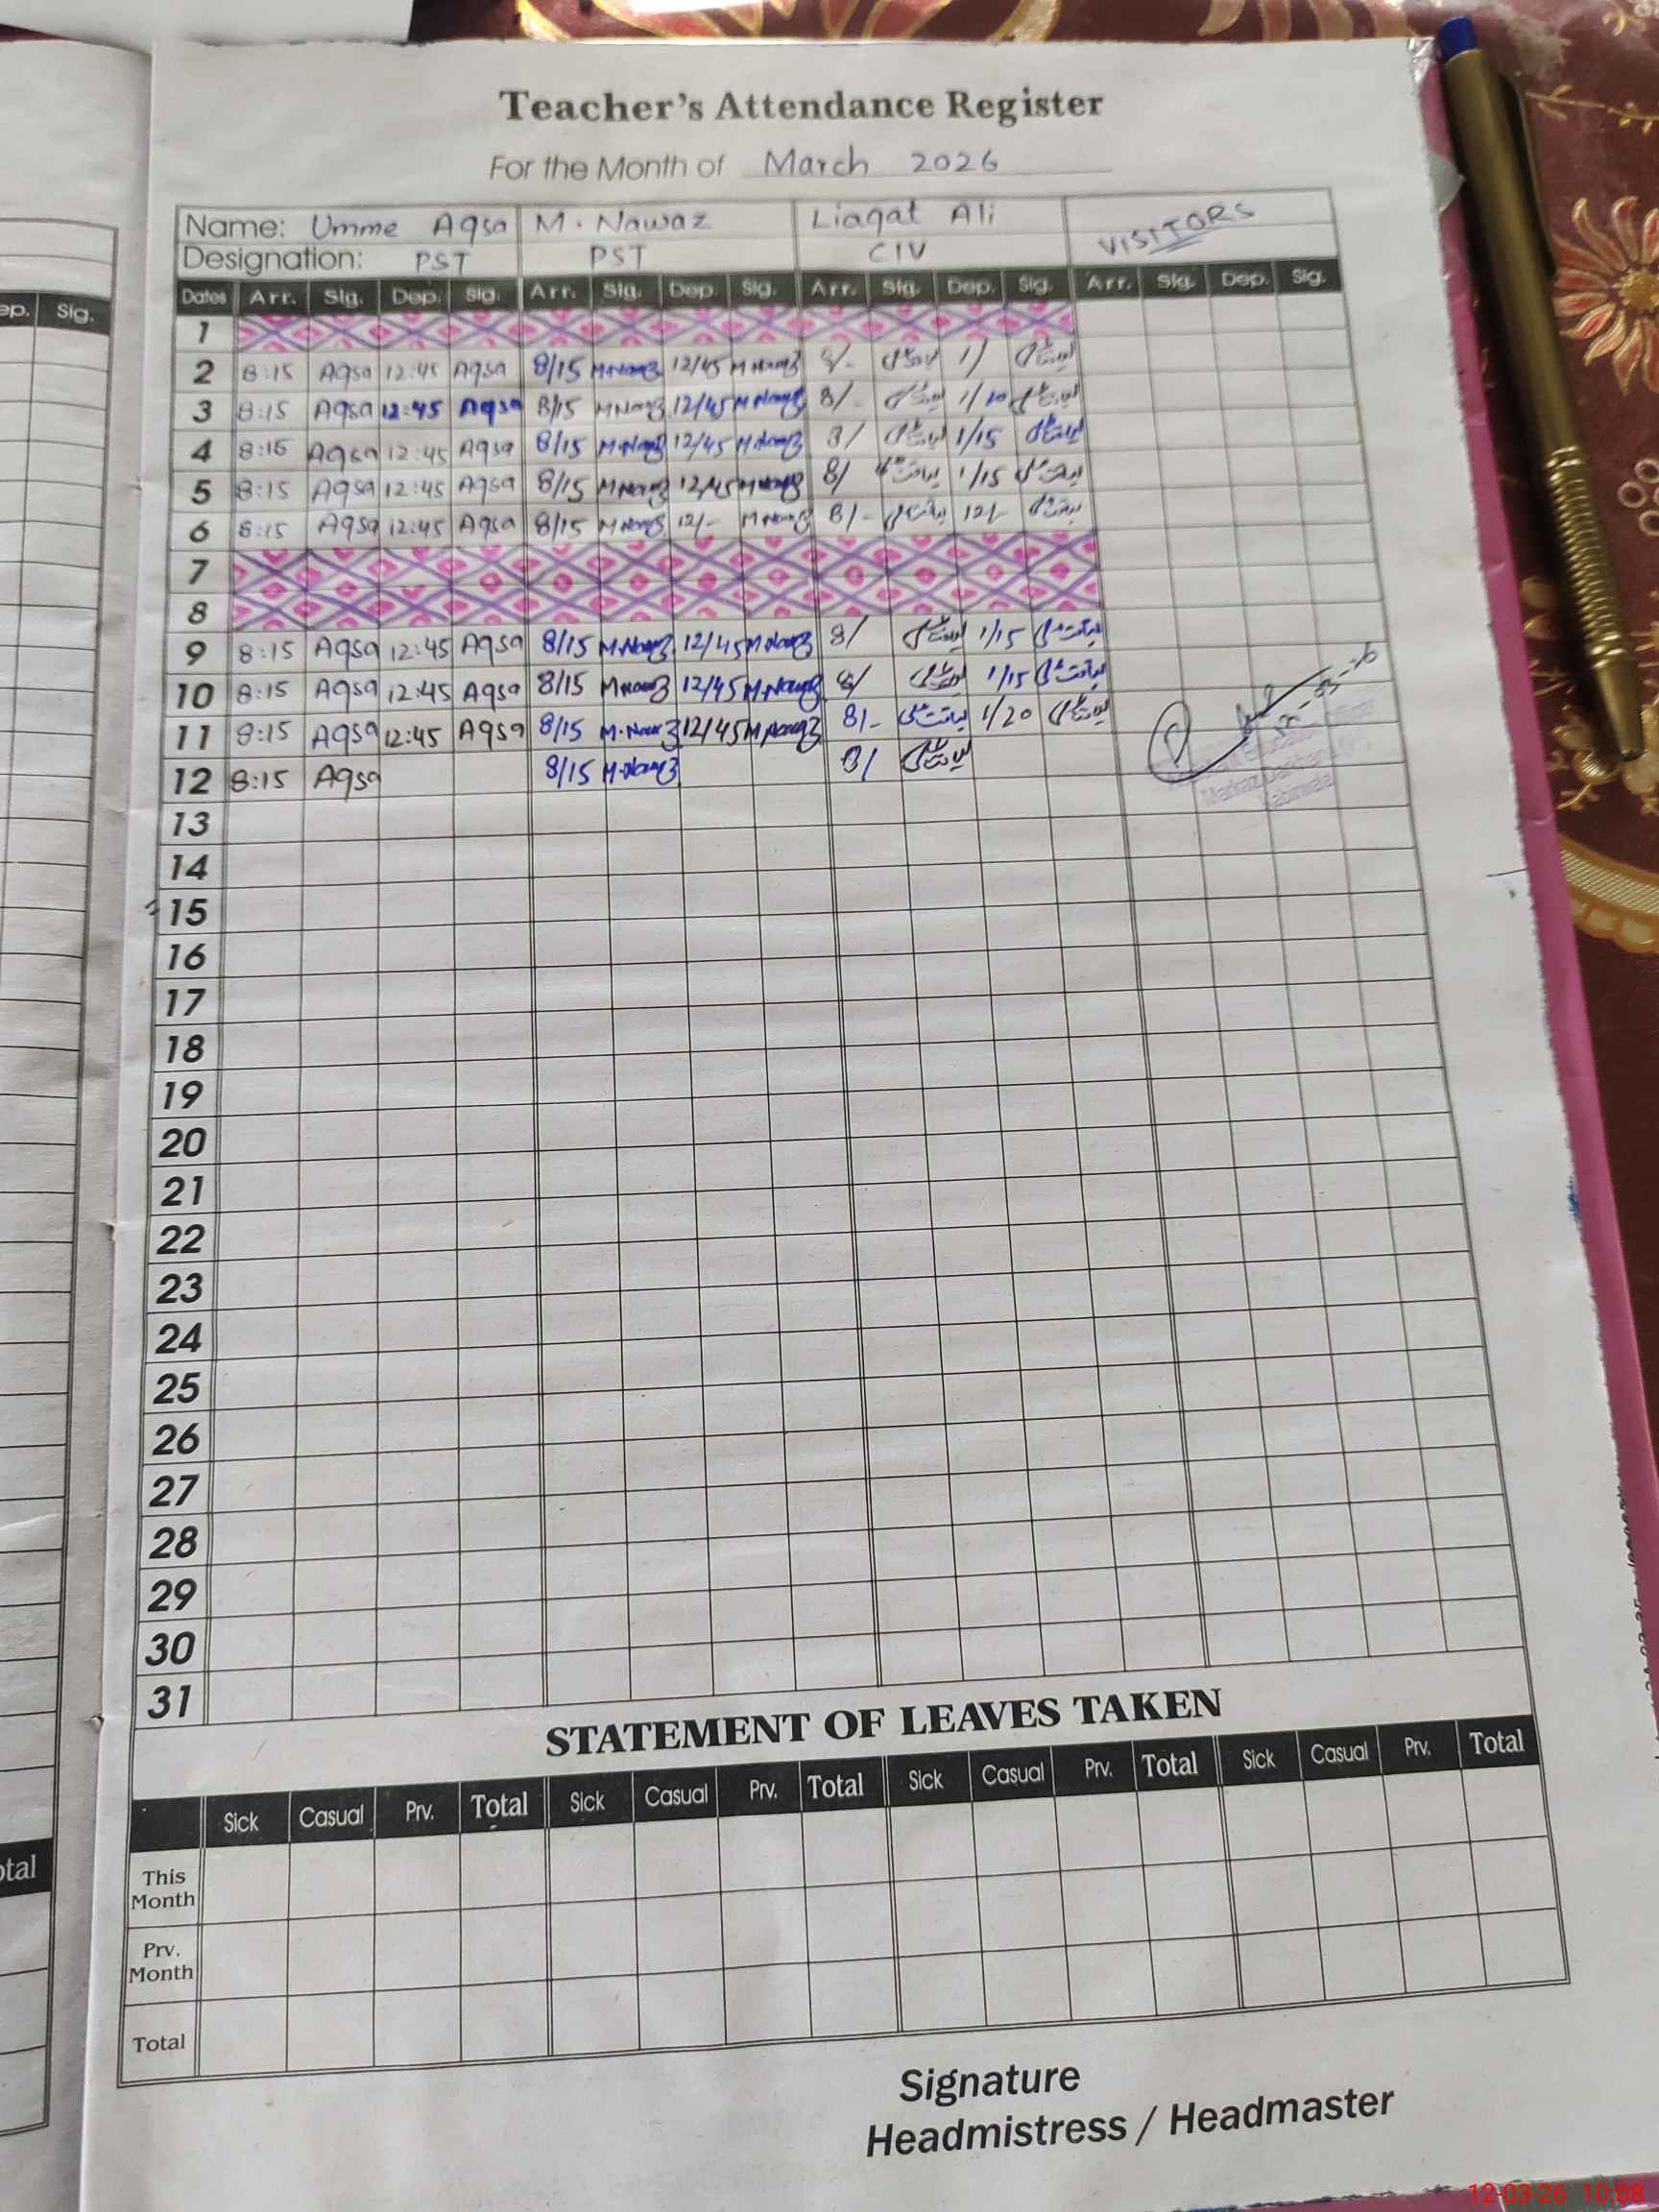 Teacher's Attendance Register
For the Month of March 2026
Name: Umme Aqsa M. Nawaz Liaqat Ali VISITORS
Designation: PST PST CIV
ep. Sig.
Dates Arr. Sig. Dep. Sig. Arr. Sig. Dep. Sig. Arr. Sig. Dep. Sig. Arr. Sig. Dep. Sig.
1
2 8:15 Aqsa 12:45 Aqsa 8/15 MNawaz 12/45 MNawaz 8/- لیاقت علی 1/ لیاقت علی
3 8:15 Aqsa 12:45 Aqsa 8/15 MNawaz 12/45 MNawaz 8/- لیاقت علی 1/10 لیاقت علی
4 8:15 Aqsa 12:45 Aqsa 8/15 M.Nawaz 12/45 MNawaz 8/ لیاقت علی 1/15 لیاقت علی
5 8:15 Aqsa 12:45 Aqsa 8/15 MNawaz 12/45 MNawaz 8/ لیاقت علی 1/15 لیاقت علی
6 8:15 Aqsa 12:45 Aqsa 8/15 MNawaz 12/- MNawaz 8/- لیاقت علی 12/- لیاقت علی
7
8
9 8:15 Aqsa 12:45 Aqsa 8/15 M.Nawaz 12/45 MNawaz 8/ لیاقت علی 1/15 لیاقت علی
10 8:15 Aqsa 12:45 Aqsa 8/15 MNawaz 12/45 M.Nawaz 8/ لیاقت علی 1/15 لیاقت علی
11 8:15 Aqsa 12:45 Aqsa 8/15 M.Nawaz 12/45 MNawaz 8/- لیاقت علی 1/20 لیاقت علی
12 8:15 Aqsa 8/15 M.Nawaz 8/ لیاقت علی
Education Officer
Markaz
Kabirwala
13
14
15
16
17
18
19
20
21
22
23
24
25
26
27
28
29
30
31
STATEMENT OF LEAVES TAKEN
Sick Casual Prv. Total Sick Casual Prv. Total Sick Casual Prv. Total Sick Casual Prv. Total
otal
This Month
Prv. Month
Total
Signature
Headmistress / Headmaster
12-03-26 10:08